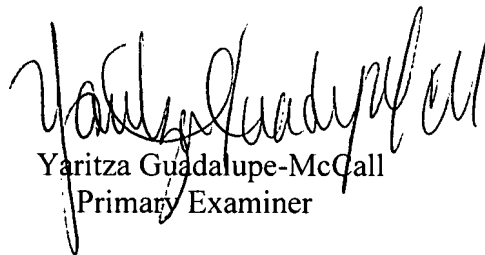 Yaritza Guadalupe-McCall
Yaritza Guadalupe-McCall
Primary Examiner